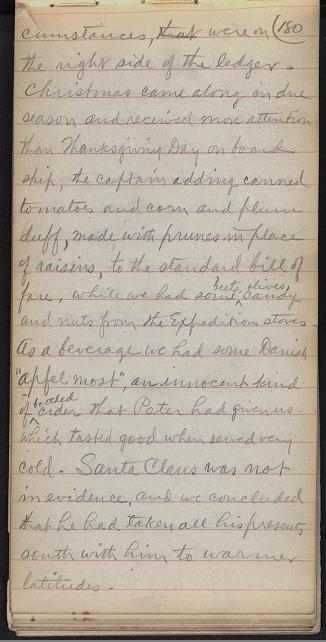 cumstances, that were on (180
the right side of the ledger.
Christmas came along in due
season and received more attention
than Thanksgiving Day on board
ship, the captain adding canned
tomatoes and corn and plum
duff, made with prunes in place
of raisins, to the standard bill of
fare, while we had some beets, olives, candy
and nuts from the Expedition stores.
As a beverage we had some Danish
"apfel most", an innocent kind
of cider that Peter had given us
which tasted good when served very
cold. Santa Claus was not
in evidence, and we concluded
that he had taken all his presents
south with him to warmer
latitudes.